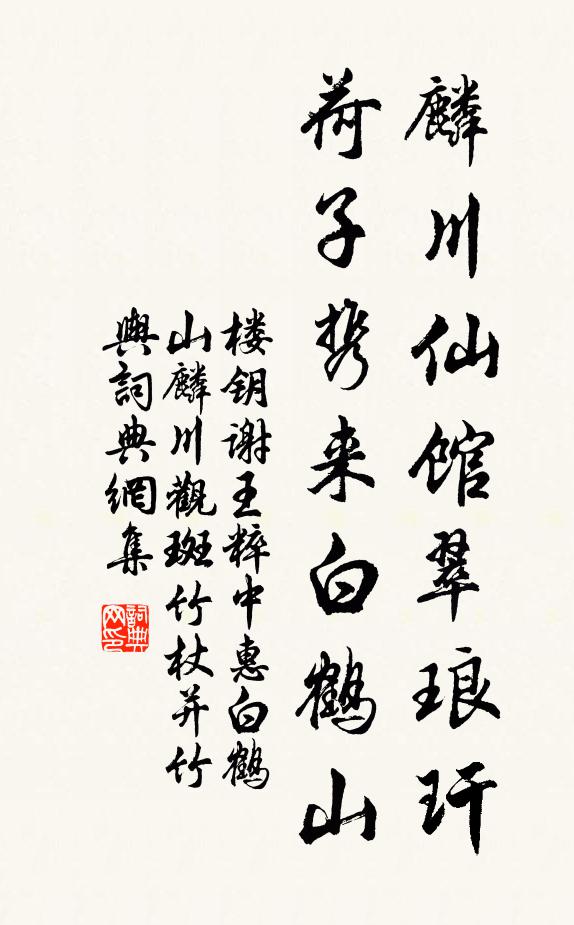 麟川仙馆翠琅玕
荷子携来白鹤山
楼钥谢王粹中惠白鹤
山麟川觀斑竹杖并竹
輿詞典網集
詞典
网印